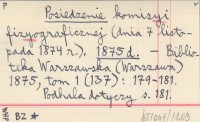 P
Posiedzenie komisyi
fizyograficznej (dnia 7 listo-
pada 1874 r.). 1875 d. - Biblio-
teka Warszawska (Warszawa)
1875, tom 1 (137): 179-181.
Podhala dotyczy s. 181.
BZ *